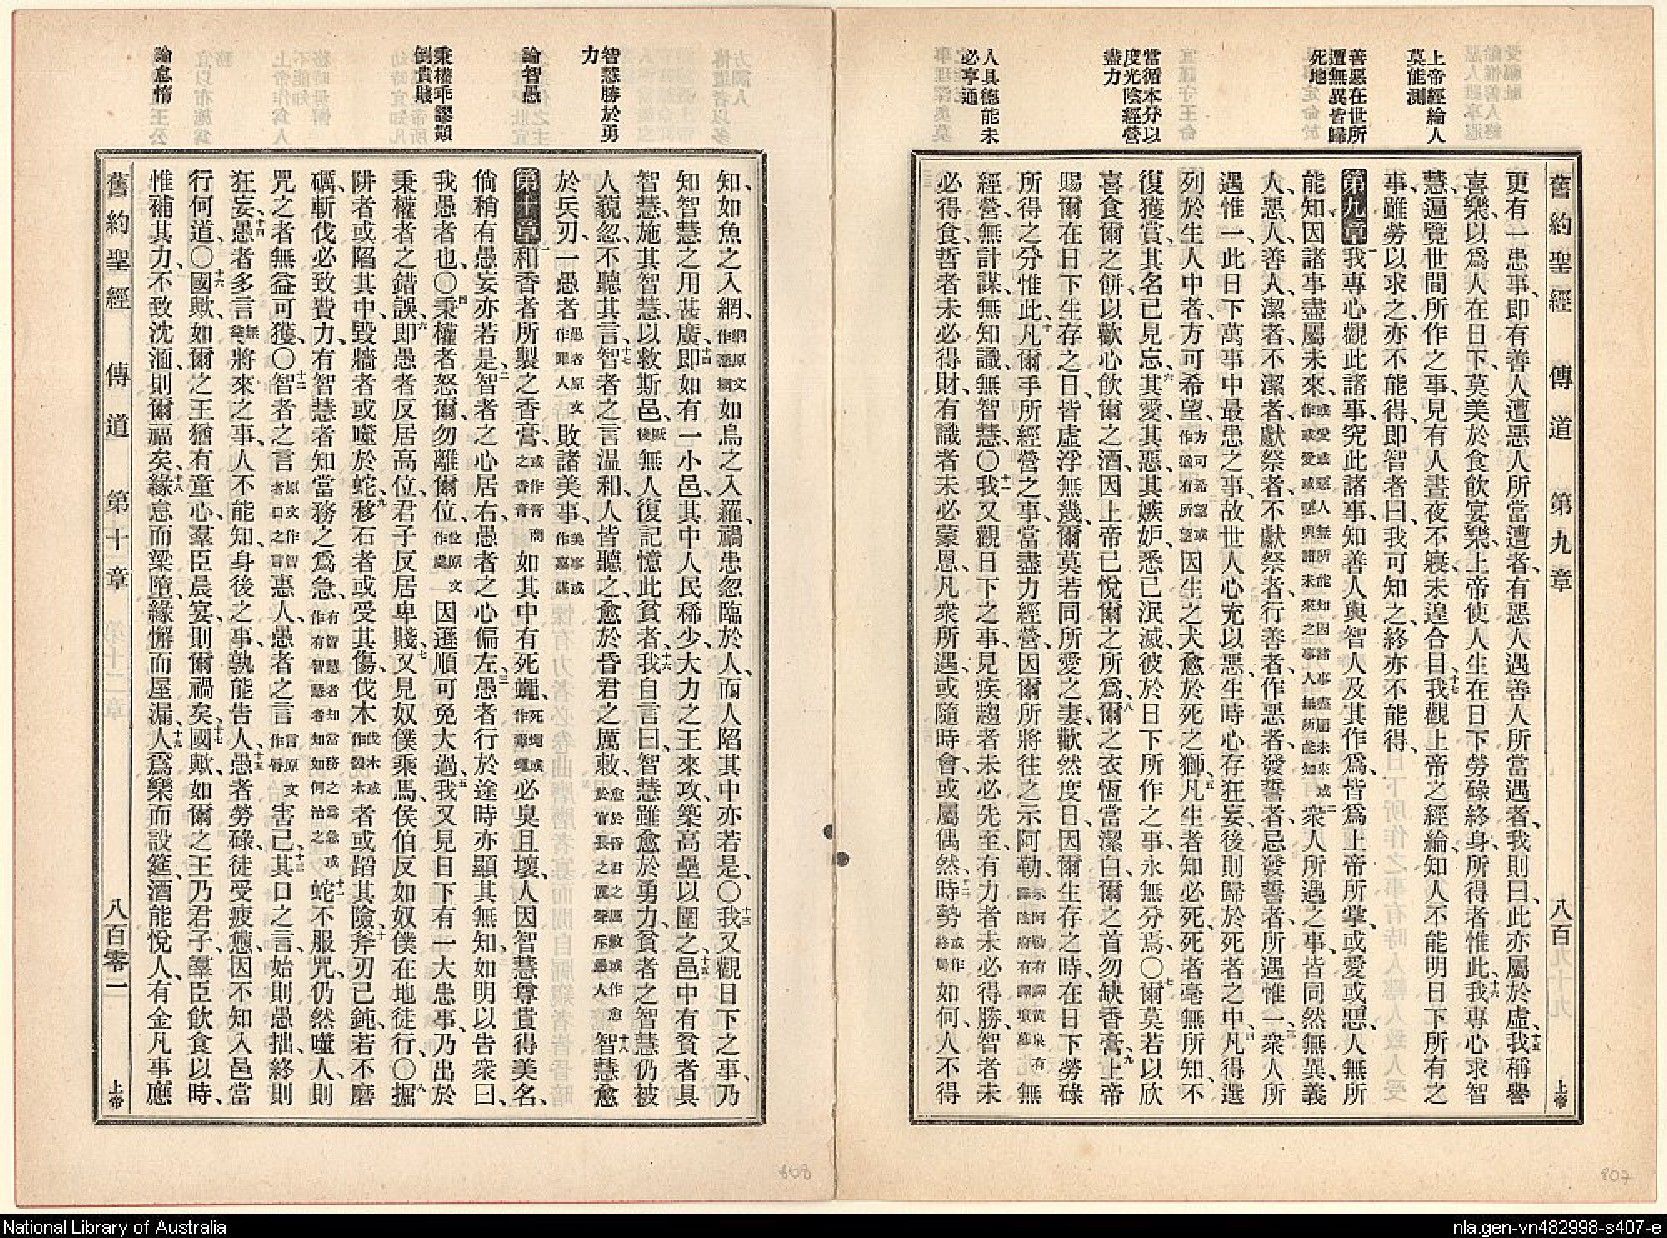 上帝經綸人
莫能測
善惡在世所
遭無異皆歸
死地
當循本分以
度光陰經營
盡力
人具德能未
必亨通
舊約聖經 傳道 第九章 八百九十九 上帝
更有一患事、卽有善人遭惡人所當遭者、有惡人遇善人所當遇者、我則曰、此亦屬於虛、十五我稱譽
喜樂、以爲人在日下、莫美於食飲宴樂、上帝使人生在日下勞碌終身、所得者惟此、十六我專心求智
慧、遍覽世間所作之事、見有人晝夜不寢、未遑合目、十七我觀上帝之經綸、知人不能明日下所有之
事、雖勞以求之、亦不能得、卽智者曰、我可知之、終亦不能得、
第九章 一我專心觀此諸事、究此諸事、知善人與智人、及其作爲、皆爲上帝所掌、或愛或惡、人無所
能知、因諸事盡屬未來、或愛或惡人無所能知因諸事盡屬未來或作或愛或惡與諸未來之事人無所能知 二衆人所遇之事、皆同然無異、義
人惡人、善人潔者、不潔者、獻祭者、不獻祭者、行善者、作惡者、發誓者、忌發誓者、所遇惟一、三衆人所
遇惟一、此日下萬事中最患之事、故世人心充以惡、生時心存狂妄、後則歸於死者之中、四凡得選
列於生人中者、方可希望、方可希望或作猶有所望 因生之犬愈於死之獅、五凡生者知必死、死者毫無所知、不
復獲賞、其名已見忘、六其愛、其惡、其嫉妒、悉已泯滅、彼於日下所作之事、永無分焉、〇七爾莫若以欣
喜食爾之餅、以歡心飲爾之酒、因上帝已悅爾之所爲、八爾之衣恆當潔白、爾之首勿缺香膏、九上帝
賜爾在日下生存之日、皆虛浮無幾、爾莫若同所愛之妻、歡然度日、因爾生存之時、在日下勞碌
所得之分惟此、十凡爾手所經營之事、當盡力經營、因爾所將往之示阿勒、示阿勒有譯黃泉有譯陰府有譯墳墓 無
經營、無計謀、無知識、無智慧、〇十一我又觀日下之事、見疾趨者未必先至、有力者未必得勝、智者未
必得食、哲者未必得財、有識者未必蒙恩、凡衆所遇、或隨時會、或屬偶然、十二時勢或作終局如何、人不得
智慧勝於勇
力
論智愚
秉權乖謬顚
倒貴賤
論怠惰
知、如魚之入網、網原文作惡網 如鳥之入羅、禍患忽臨於人、而人陷其中亦若是、〇十三我又觀日下之事、乃
知智慧之用甚廣、十四卽如有一小邑、其中人民稀少、大力之王來攻、築高壘以圍之、十五邑中有貧者具
智慧、施其智慧、以救斯邑、厥後無人復記憶此貧者、十六我自言曰、智慧雖愈於勇力、貧者之智慧仍被
人藐忽、不聽其言、十七智者之言溫和、人皆聽之、愈於昏君之厲敕、愈於昏君之厲敕或作愈於官長之厲聲斥愚人 十八智慧愈
於兵刃、一愚者愚者原文作罪人敗諸美事、美事或作嘉謀
第十章 一和香者所製之香膏、或作香商之香膏 如其中有死蠅、死蠅或作毒蠅必臭且壞、人因智慧尊貴得美名、
倘稍有愚妄亦若是、二智者之心居右、愚者之心偏左、三愚者行於途時、亦顯其無知、如明以告衆曰、
我愚者也、〇四秉權者怒爾、勿離爾位、位原文作處因遜順可免大過、五我又見日下有一大患事、乃出於
秉權者之錯誤、六卽愚者反居高位、君子反居卑賤、七又見奴僕乘馬、侯伯反如奴僕在地徒行、〇八掘
阱者或陷其中、毀牆者或噬於蛇、九移石者或受其傷、伐木伐木或作劈木者或蹈其險、十斧刃已鈍、若不磨
礪、斬伐必致費力、有智慧者知當務之爲急、有智慧者知當務之爲急或作有智慧者知如何治之 十一蛇不服咒、仍然噬人、則
咒之者無益可獲、〇十二智者之言原文作智者口之言惠人、愚者之言言原文作脣害己、十三其口之言、始則愚拙、終則
狂妄、十四愚者多言、無奈將來之事、人不能知、身後之事、孰能告人、十五愚者勞碌、徒受疲憊、因不知入邑當
行何道、〇十六國歟、如爾之王猶有童心、羣臣晨宴、則爾禍矣、十七國歟、如爾之王乃君子、羣臣飲食以時、
惟補其力、不致沈湎、則爾福矣、十八緣怠而梁墮、緣懈而屋漏、十九人爲樂而設筵、酒能悅人、有金凡事應
舊約聖經 傳道 第十章 八百零一 上帝
808
807
National Library of Australia
nla.gen-vn482998-s407-e